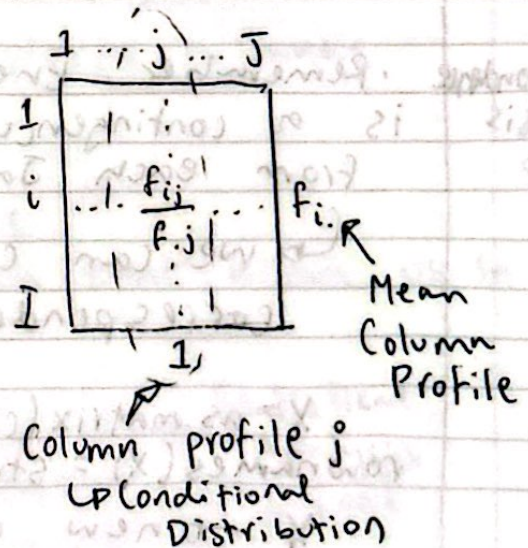 1 ... j ... J
1
i ... fij / f.j ... fi.
I
1
Mean
Column
Profile
Column profile j
↳ Conditional
Distribution